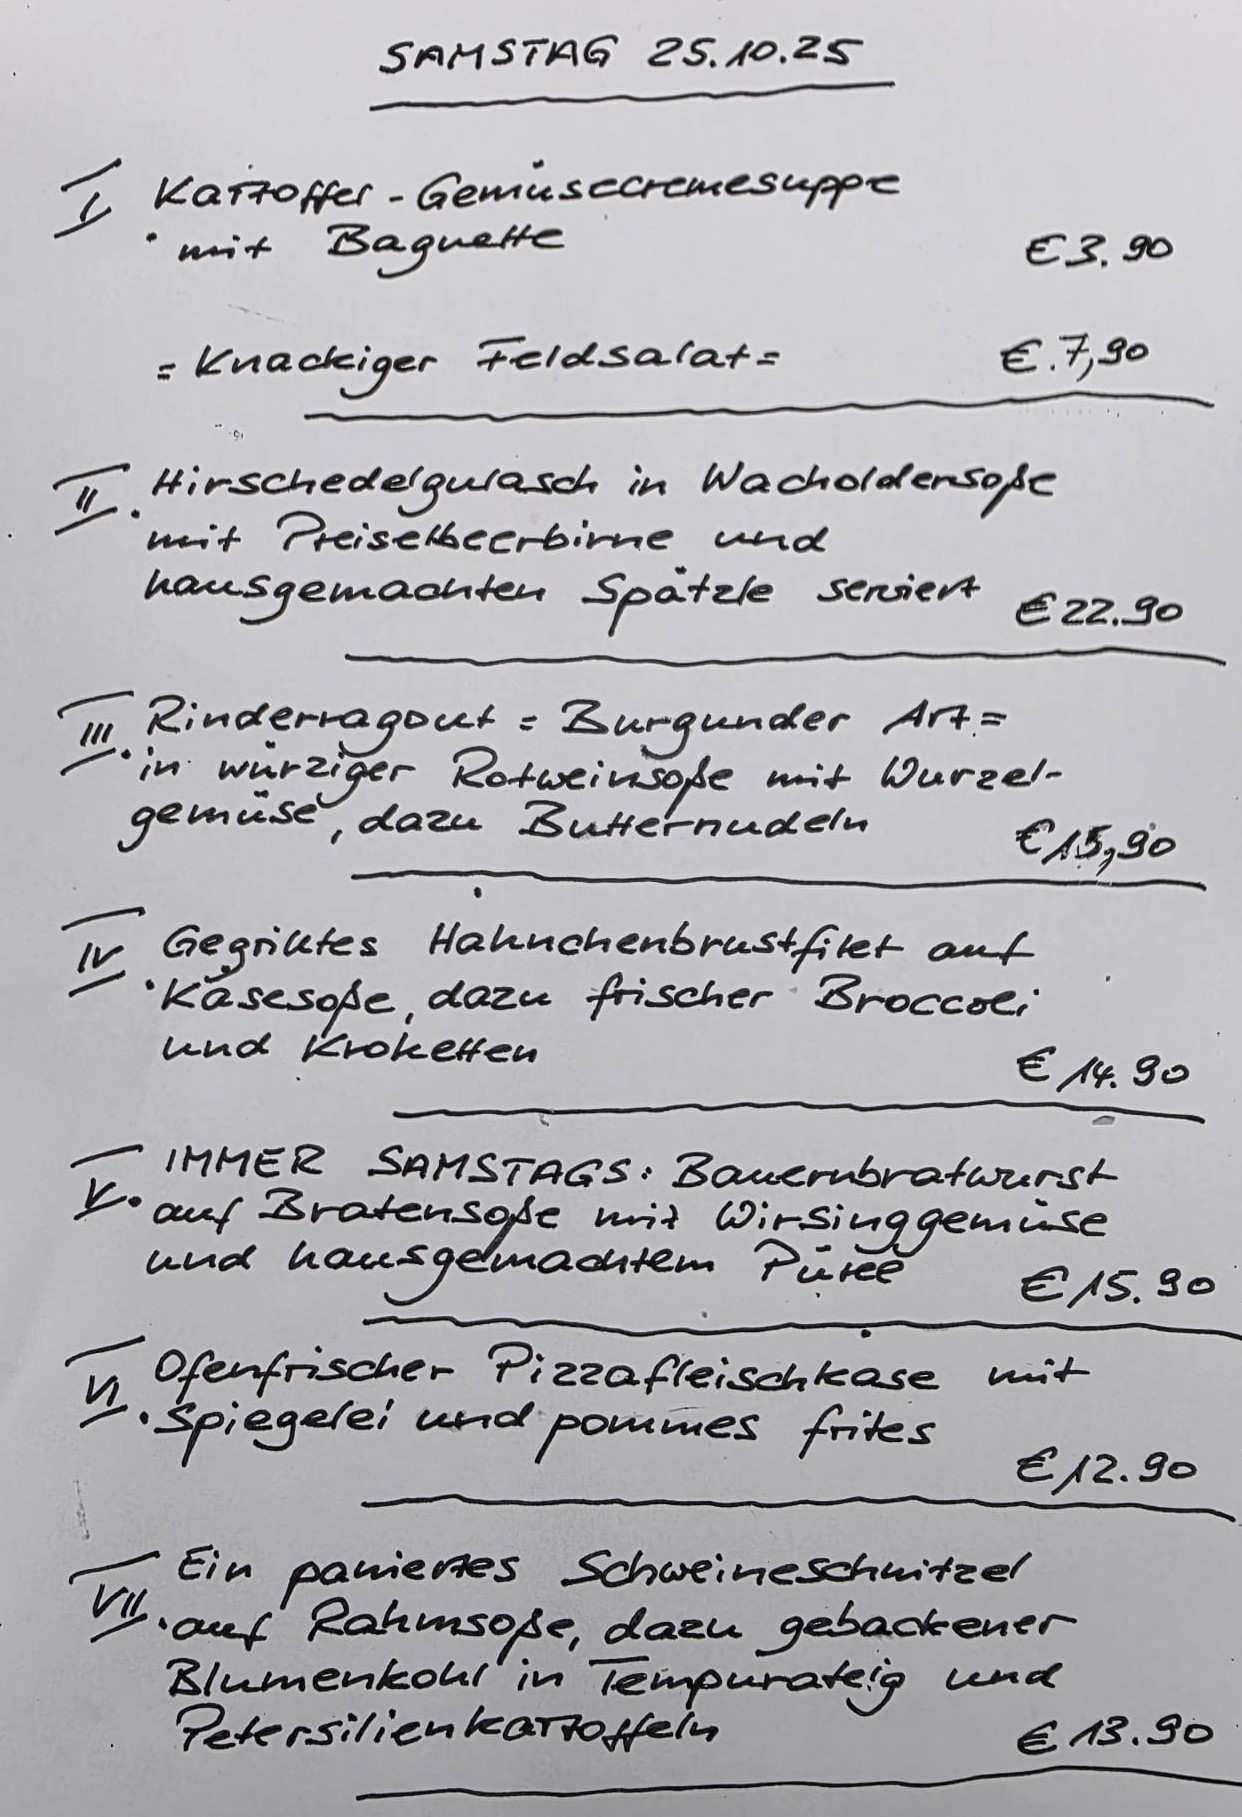 SAMSTAG 25.10.25
I. Kartoffel-Gemüsecremesuppe
mit Baguette € 3.90
= Knackiger Feldsalat = €.7,90
II. Hirschedelgulasch in Wacholdersoße
mit Preiselbeerbirne und
hausgemachten Spätzle serviert € 22.90
III. Rinderragout = Burgunder Art =
in würziger Rotweinsoße mit Wurzel-
gemüse, dazu Butternudeln € 15,90
IV. Gegrilltes Hähnchenbrustfilet auf
Käsesoße, dazu frischer Broccoli
und Kroketten € 14.90
V. IMMER SAMSTAGS: Bauernbratwurst
auf Bratensoße mit Wirsinggemüse
und hausgemachtem Püree € 15.90
VI. Ofenfrischer Pizzafleischkäse mit
Spiegelei und pommes frites € 12.90
VII. Ein paniertes Schweineschnitzel
auf Rahmsoße, dazu gebackener
Blumenkohl in Tempurateig und
Petersilienkartoffeln € 13.90